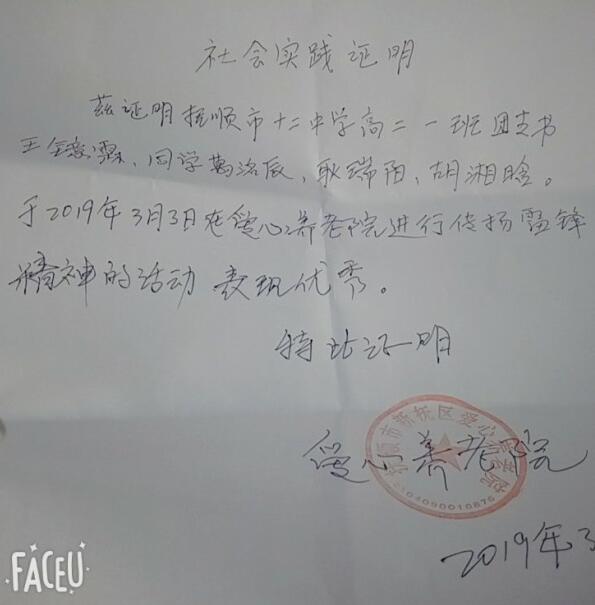 社会实践证明
兹证明抚顺市十二中学高二一班团支书
王 霖、同学葛洺辰,耿端阳,胡湘晗。
于2019年3月3日在爱心养老院进行传扬雷锋
精神的活动 表现优秀。
特此证明
抚顺市新抚区爱心养老院
爱心养老院
2104090010876
2019年3
FACEU